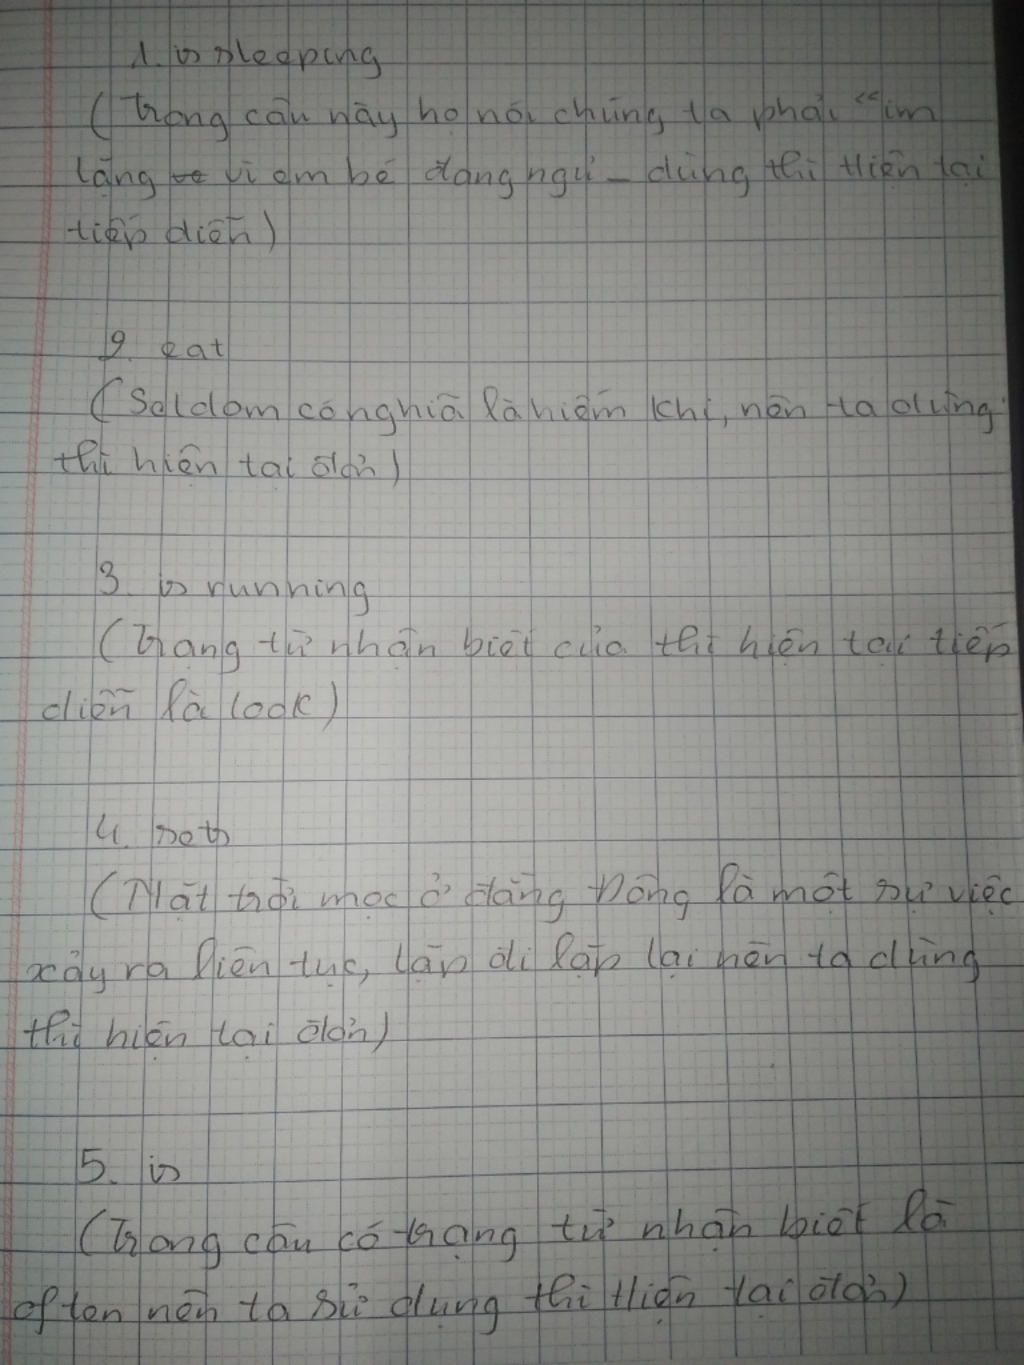 1. is sleeping
(Trong câu này họ nói chúng ta phải "im
lặng vì em bé đang ngủ - dùng thì Hiện tại
tiếp diễn)
2. eat
(Seldom có nghĩa là hiếm khi, nên ta dùng
thì hiện tại đơn)
3. is running
(Trạng từ nhận biết của thì hiện tại tiếp
diễn là look)
4. sets
(Mặt trời mọc ở đằng Đông là một sự việc
xảy ra liên tục, lặp đi lặp lại nên ta dùng
thì hiện tại đơn)
5. is
(Trong câu có trạng từ nhận biết là
often nên ta sử dụng thì Hiện tại đơn)